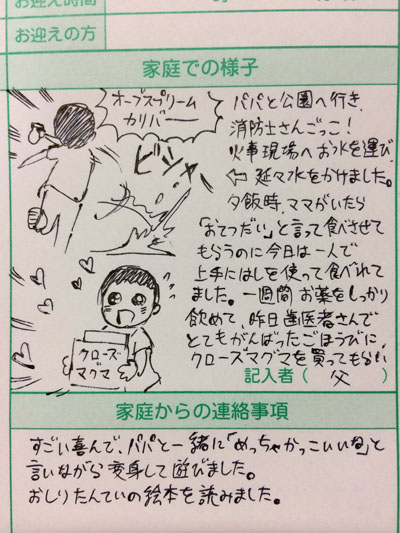 お迎え時間
お迎えの方
家庭での様子
オーブスプリーム
カリバー
ビシャ
パパと公園へ行き、
消防士さんごっこ!
火事現場へお水を運び
⇦ 延々水をかけました。
夕飯時、ママがいたら
「おてつだい」と言って食べさせて
もらうのに今日は一人で
上手にはしを使って食べれて
ました。一週間お薬をしっかり
飲めて、昨日歯医者さんで
とてもがんばったごほうびに、
クローズマグマを買ってもらい
クローズ
マグマ
記入者(父)
家庭からの連絡事項
すごい喜んで、パパと一緒に「めっちゃかっこいいね」と
言いながら変身して遊びました。
おしりたんていの絵本を読みました。